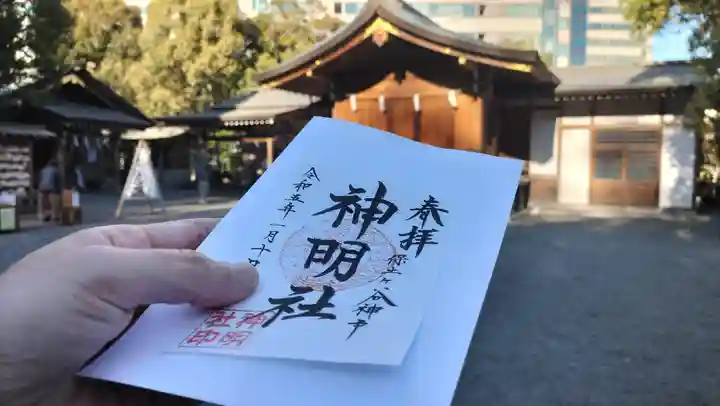 奉拝
保土ヶ谷神戸
神明社
令和五年一月十
神明
社印